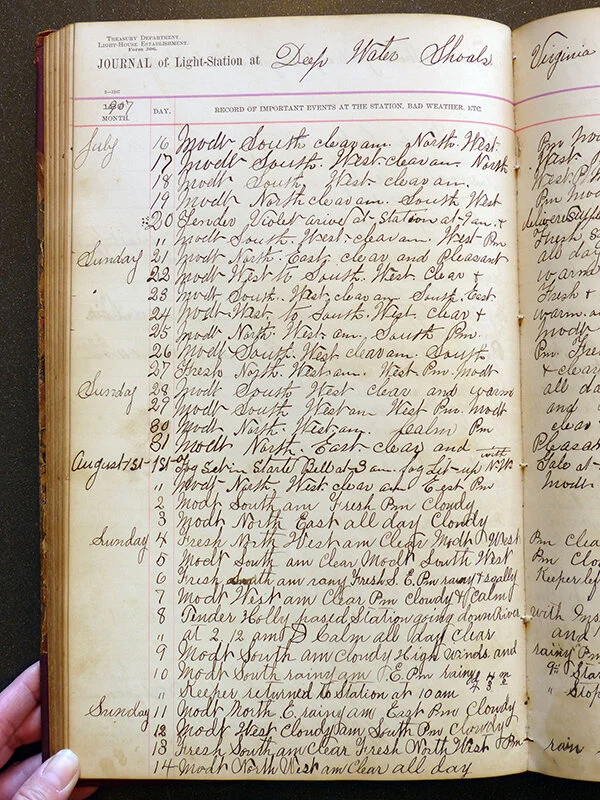 TREASURY DEPARTMENT.
LIGHT-HOUSE ESTABLISHMENT.
Form 306.
JOURNAL of Light-Station at Deep Water Shoals Virginia
1907
MONTH. DAY. RECORD OF IMPORTANT EVENTS AT THE STATION, BAD WEATHER, ETC.
July 16 Modt South clear am. North. West Pm Mod
17 Modt South. West clear am. North West P
18 Modt South West clear am. West. P. M
19 Modt North clear am. South West Pm Mod
20 Tender Violet arive at Station at 9 am. &
" Modt South. West clear am. West Pm Fresh, &
Sunday 21 Modt North. East. clear and Pleasant all day
22 Modt West to South. West. Clear & warm
23 Modt South. West clear am South. East Fresh &
24 Modt West to South. West. clear & warm. a
25 Modt North. West am. South Pm. Modt
26 Modt South. West clear am. South Pm. Fre
27 Fresh North. West am. West Pm. Modt & clear
Sunday 28 Modt South West clear and warm all da
29 Modt South. West am West Pm. Modt and
30 Modt North. West. am. Calm Pm clear
31 Modt North. East clear and Pleasan
August 1st 1st Fog Set in Starte Bell at 3 am. fog Let up with N.W.
" Modt North West clear am East Pm Modt
2 Modt South am Fresh Pm Cloudy
3 Modt North East all day Cloudy
Sunday 4 Fresh North West am Clear Modt & West Pm Clea
5 Modt South am Clear Modt South West Pm Clo
6 Fresh South am rany Fresh S. E. Pm rany & sqally Keeper lef
7 Modt West am Clear Pm Cloudy & Calm
8 Tender Holly pased Station going down River with Ins
" at 2, 12 am Calm all day clear and
9 Modt South am Cloudy High Winds and rainy Pm
10 Modt South rainy am E. Pm rainy 9 Star
" Keeper returned to Station at 10 am " Stop
Sunday 11 Modt North E. rainy am East Pm Cloudy
12 Modt West Cloudy am South Pm Cloudy
13 Fresh South am Clear Fresh North West & Pm rain
14 Modt North West am Clear all day